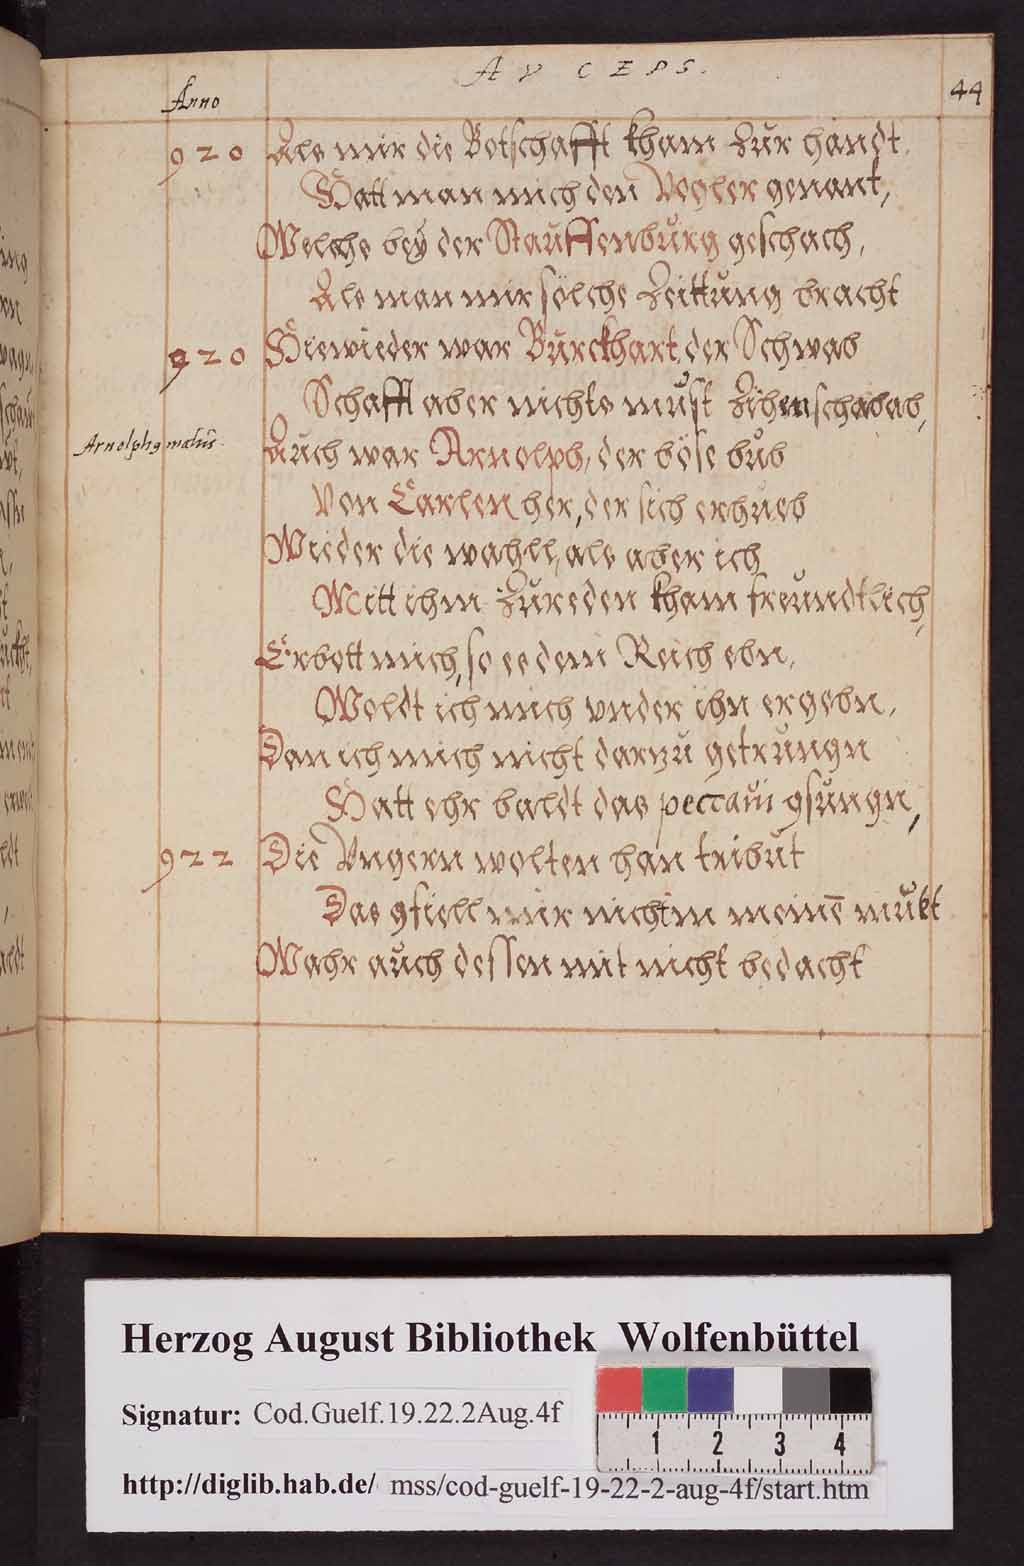 AVCEPS.
44
Anno
920 Als mir die Botschafft kham zůr handt
Hatt man mich den Vogler genant,
Welchs beÿ der Stauffenbůrg geschach,
Als man mir solche Zeittůng bracht
920 Hiewieder war Burckhart, der Schwab
Schafft aber nichts můst zihen schabab,
Arnolphꝰ malus. Aůch war Arnolph, der böse bůb
Von Carlen her, der sich erhueb
Wieder die wahll, als aber ich
Mitt ihm zůreden kham freůndtlich,
Erbott mich, so es dem Reich ebn,
Woldt ich mich vnder ihn ergebn,
Dan ich mich nicht darzů getrůngn
Hatt ehr baldt das peccaui gsůngn,
922 Die Vngern wolten han tribůt
Das gfiell mir nicht in meinē můtt
Wahr aůch dessen mit nicht bedacht
Herzog August Bibliothek Wolfenbüttel
Signatur: Cod.Guelf.19.22.2Aug.4f
1 2 3 4
http://diglib.hab.de/ mss/cod-guelf-19-22-2-aug-4f/start.htm